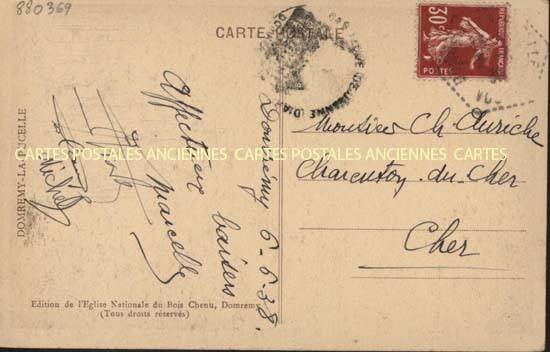 880369
CARTE POSTALE
30c
POSTES
DOMREMY-LA-PUCELLE
Domrémy 6-6-38.
Affectueux baisers
Marcelle
Michel
Monsieur Ch. Auriche
Charenton-du-Cher
Cher
CARTES POSTALES ANCIENNES CARTES POSTALES ANCIENNES CARTES
Edition de l'Eglise Nationale du Bois Chenu, Domremy
(Tous droits réservés)